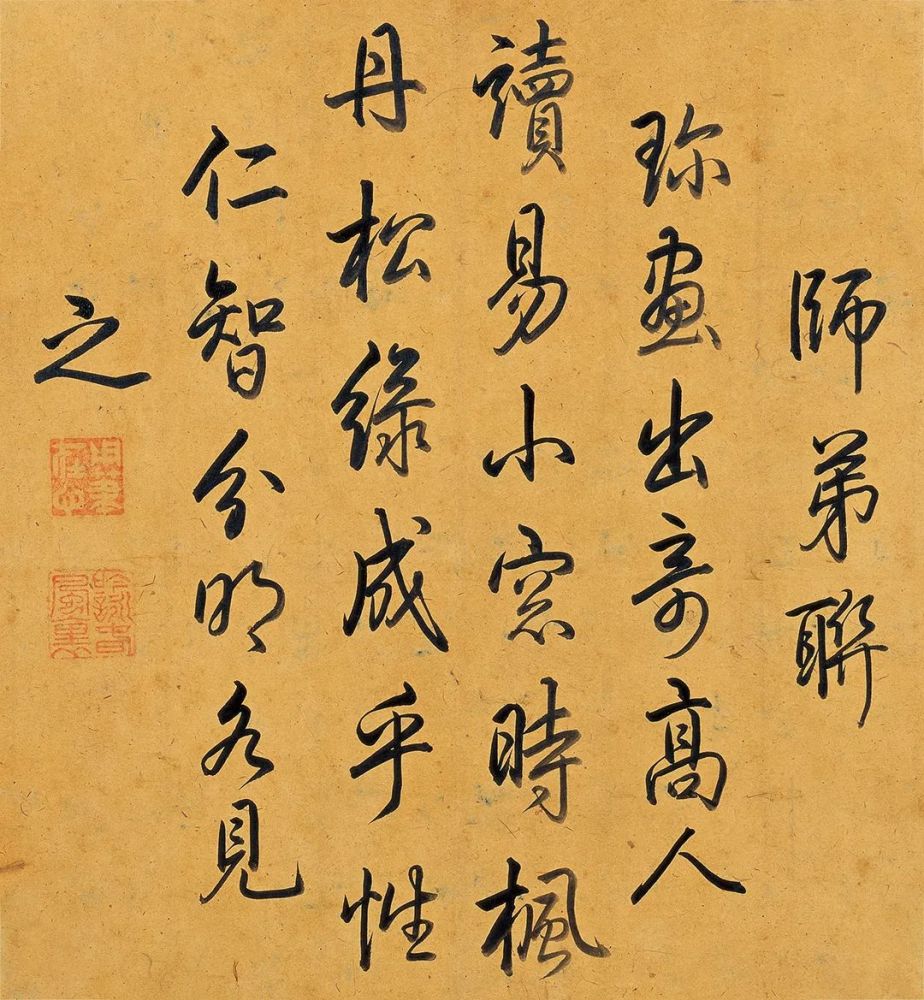 師弟聯
珎畫出奇高人
讀易小窓時楓
丹松綠成乎性
仁智分明各見
之